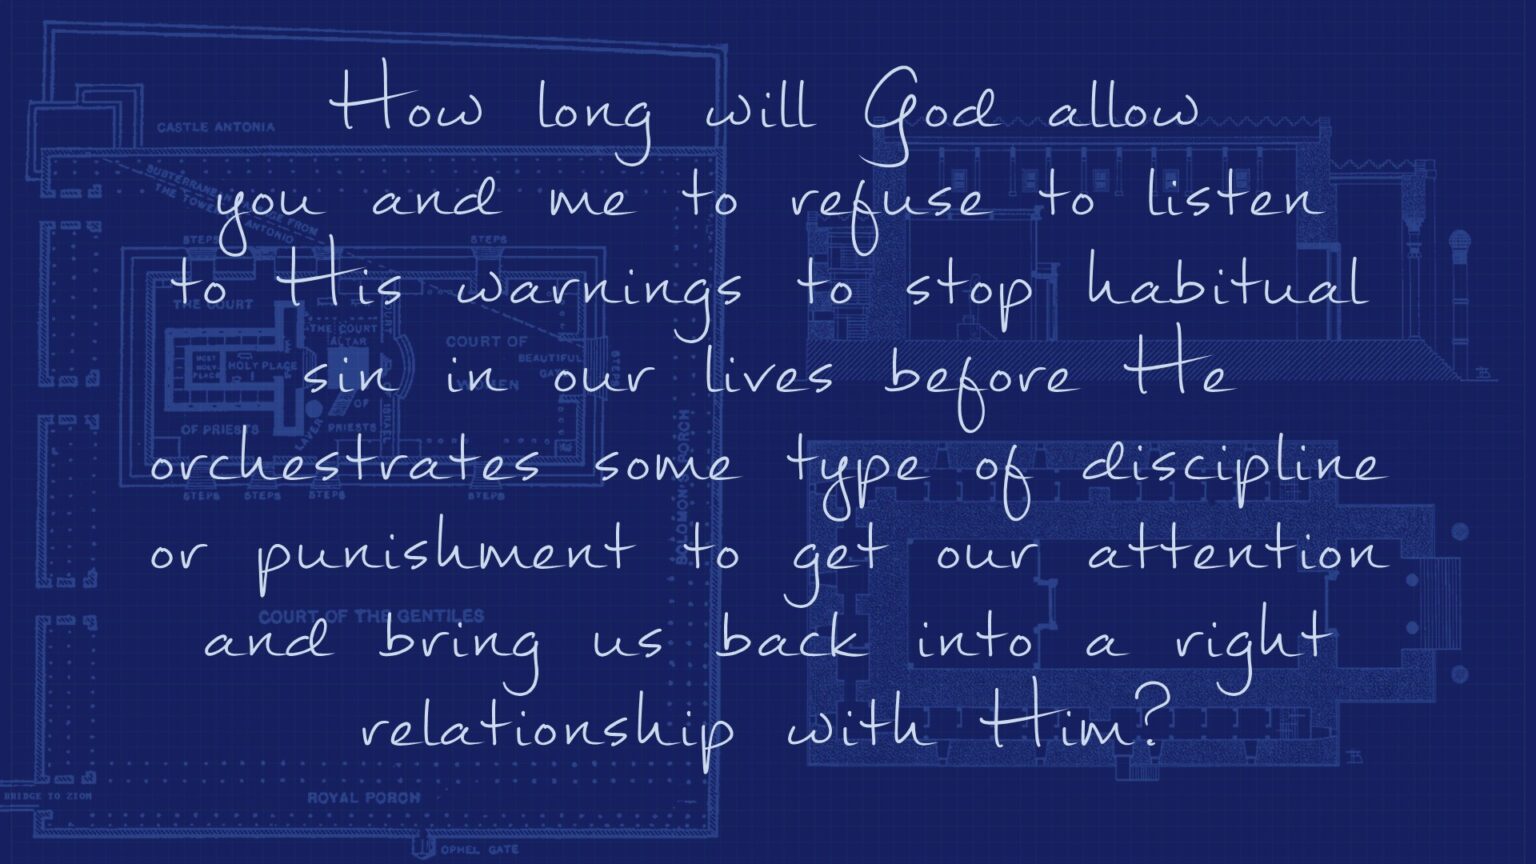 How long will God allow
you and me to refuse to listen
to His warnings to stop habitual
sin in our lives before He
orchestrates some type of discipline
or punishment to get our attention
and bring us back into a right
relationship with Him?
CASTLE ANTONIA
STEPS
STEPS
THE COURT
THE COURT
ALTAR
COURT OF
WOMEN
BEAUTIFUL
GATE
STEPS
MOST
HOLY
PLACE
HOLY PLACE
OF PRIESTS
LAVER
OF
PRIESTS
COURT
ISRAEL
STEPS
STEPS
STEPS
STEPS
SOLOMON'S PORCH
COURT OF THE GENTILES
BRIDGE TO ZION
ROYAL PORCH
OPHEL GATE